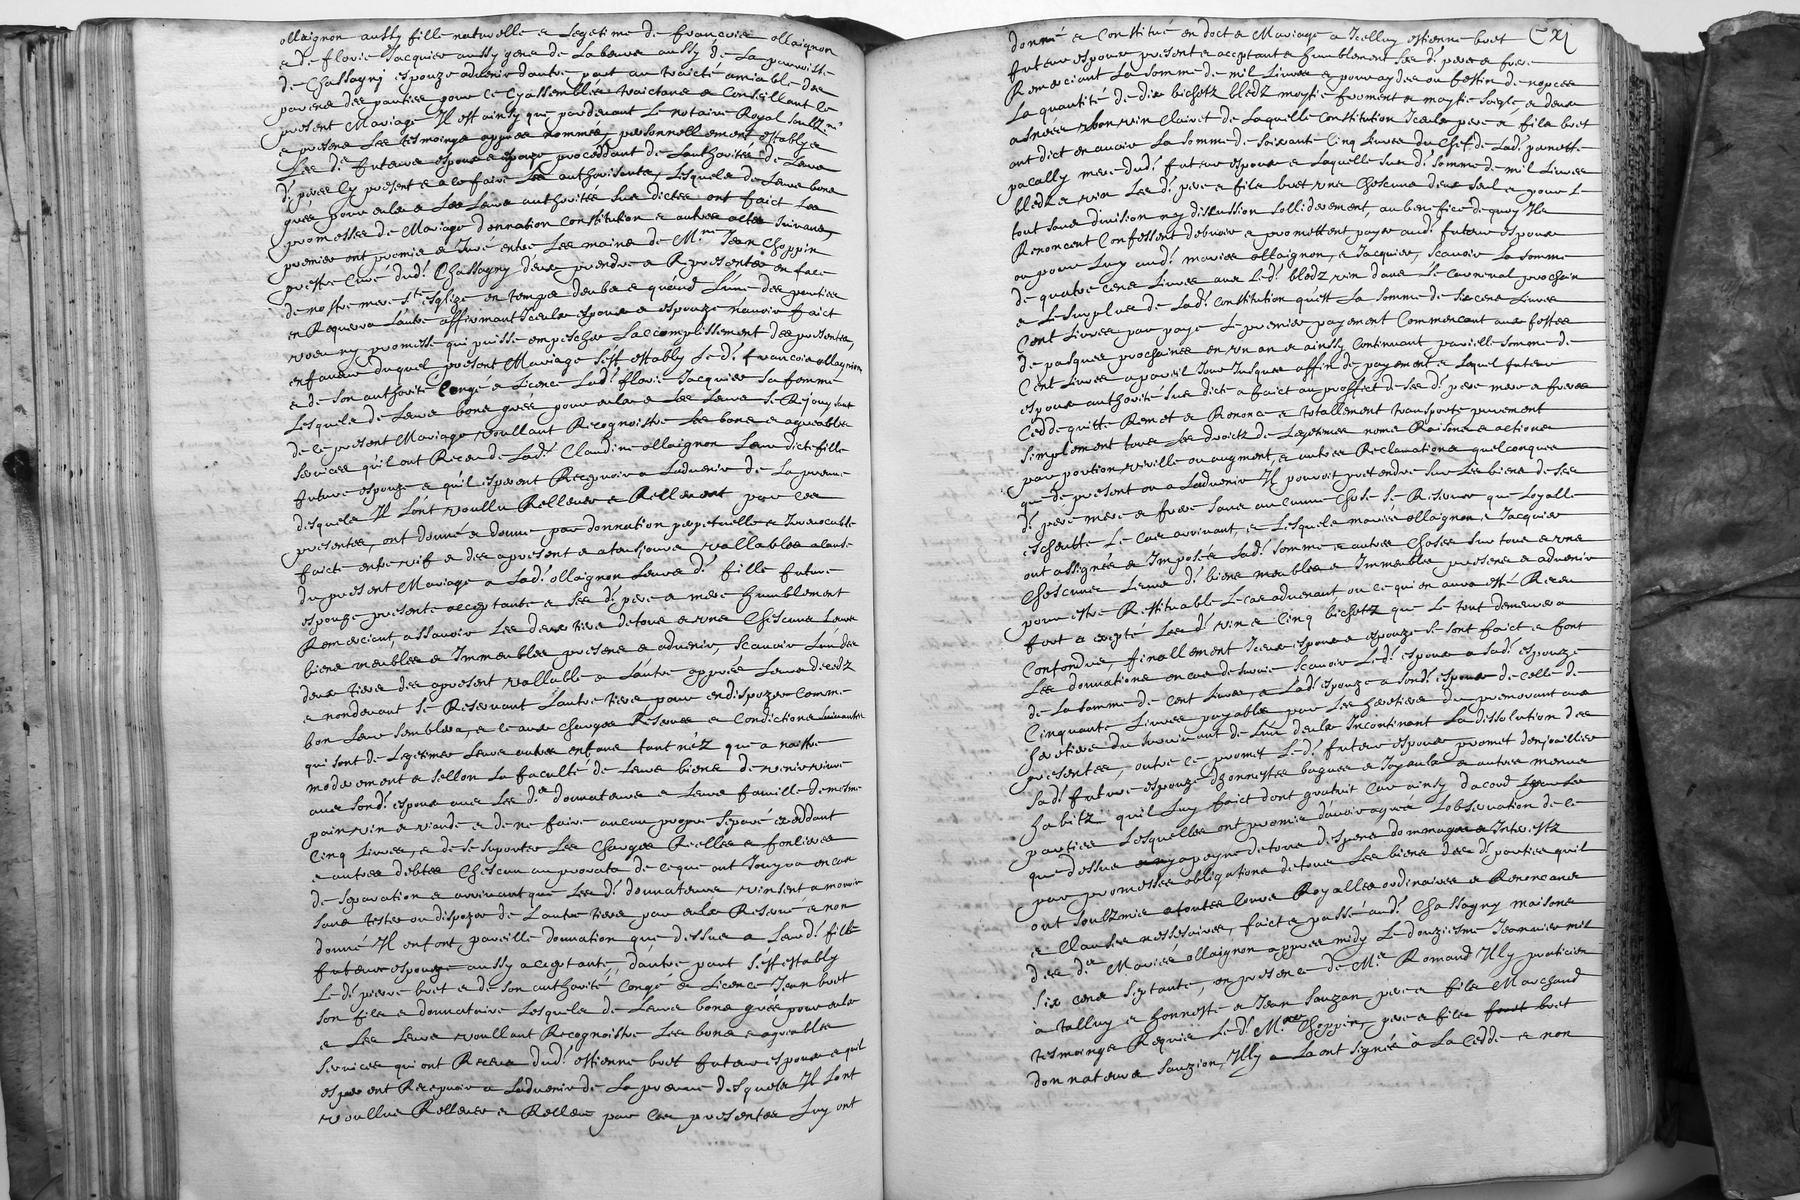 ollaignon aussy fille naturelle e legetime de francois ollaignon
e de florie Jacquier aussy gens de labeur aussy de La parroisse
de Chassagny espouze advenir dautre part au traicté amiable des
parens des parties pour ce Cy assemblés traictans e Conseillant le
present Mariage Il est ainsy que pardevant Le notaire Royal soubz.né
e presens Les tesmoings appres nommés, personnellement establys
Les d. futeurs espoux e espouze proceddant de Lauthorités de Leurs
d. peres Cy present e a ce faire Les authorisants, Lesquels de Leurs bons
grées pour eulx e Les Leurs authorités sus dictes ont faict Les
promesses de Mariage donnation Constitution e autres actes suivans,
premier ont promis e Juré entre Les mains de M.re Jean Choppin
prestre Curé dud. Chassagny d'eux prendre e Representer en face
de nostre mere s.te esglize en temps deubs e quand L'une des parties
en Requerra L'autre affirmant Iceulx espoux e espouze n'avoir faict
voeu ny promesse qui puisse empescher Laccomplissement des presentes,
en faveur duquel present Mariage s'est estably Le d. francois ollaignon
e de son authorité Congé e Licence Lad. florie Jacquier sa femme
Lesquels de Leurs bons grées pour eulx e Les Leurs se Rejouyssant
de ce present Mariage voullant Recognoistre Les bons e agreables
services quil ont Receu de Lad. Claudine ollaignon Leur dicte fille
future espouze e quil esperent Recepvoir a Ladvenir de La preuve
desquels Il Lont voullu Rellever e Rellevent par ces
presentes, ont donné e donne par donnation perpetuelle e Irrevocable
faicte entre vif e des apresent e a tousjours vallables a cause
du present Mariage a Lad. ollaignon Leurs d. fille future
espouze presente acceptante e ses d. pere e mere humblement
Remerciant, assavoir Les deux tiers de tous e uns Chescuns Leurs
biens meubles e Immeubles presens e advenir, scavoir L'un des
deux tiers des apresent vallable e L'autre appres Leurs decedz
e non devant se Reservant L'autre tiers pour en dispozer Comme
bon Leur semblera, e ce aux charges Reserves e Condictions suivantes
qui sont de Legetimer Leurs autres enfans tant néz que a naistre
moderement e sellon La faculté de Leurs biens de venir vivre
avec sond. espoux avec Les d. donnateurs e Leurs famille de mesme
pain vin e viande e de ne faire aucun propre separé exceddant
Cinq Livres, e de se suporter Les Charges Réelles e fonsieres
e autres debtes Chescun au prorata de ce que ont Jouyra en cas
de separation e arrivant que Les d. donnateurs vinsent a mourir
sans tester ou dispozer de L'autre tiers par eulx Reservé e non
donné Il en font pareille donnation que dessus a Leurd. fille
future espouze aussy acceptante, dautre part s'est estably
Le d. pierre bret e de son authorité Congé e Licence Jean bret
son fils e donnataire Lesquels de Leurs bons grées pour eulx
e Les Leurs voullant Recognoistre Les bons e agreables
services qui ont Receus dud. estienne bret futeur espoux e quil
esperent Recepvoir a Ladvenir de La preuve desquels Il Lont
voullus Rellever e Relleve par ces presentes Luy ont
Cxj
donné e Constitué en doct e Mariage a Icelluy estienne bret
futeur espoux present e acceptant e humblement ses d. pere e frere
Remerciant La somme de mil Livres e pour ayder au festin de nopces
La quantité de dix bichetz bledz moytie froment e moytie soigle e deux
asnées bon vin Clairet de Laquelle Constitution Iceulx pere e fils bret
ont dict en avoir La somme de soixante Cinq Livres du Chef de Lad. pernette
pacally mere dud. futeur espoux e Laquelle susd. somme de mil Livres
bledz e vin Les d. pere e fils bret un Chescun d'eux seul e pour Le
tout sans division ny discussion sollidairement, au benefice de quoy Ils
Renoncent Confessent debvoir e promettent payer aud. futeur espoux
ou pour Luy aud. mariés ollaignon, e Jacquier, scavoir La somme
de quatre cens Livres avec Led. bledz vin dans Le Carneval prochain
e Le surplus de Lad. Constitution qu'est La somme de six cens Livres
Cent Livres par paye Le premier payement Commencant aux festes
de pasques prochaines en un an e ainssy Continuant pareille somme de
Cent Livres a pareil Jour Jusques affin de payement e Lequel futeur
espoux authorité sus dicte a faict au proffict de ses d. pere mere e freres
Cedde quitte Remet e Renonce e totallement transporte purement
simplement tous ses droictz de Legetimes noms Raisons e actions
par portion virille ou augment, e autres Reclamations quelconques
que de present ou a Ladvenir Il pourroit pretendre sur Les biens de ses
d. pere mere e frere sans aucunne Chose se Reserver que Loyalle
escheutte Le Cas arrivant, e Lesquels mariés ollaignon e Jacquier
ont assignés e Imposés Lad. somme e autres Choses sur tous e uns
Chescuns Leurs d. biens meubles e Immeubles presens e advenir
pour estre Restituable Le cas advenant ou ce qui en aura esté Receu
fort e excepté Les d. vin e Cinq bichetz que Le tout demeurera
Confondus, finallement Iceux espoux e espouze se sont faict e font
Les donnations en cas de survie scavoir Led. espoux a sad. espouze
de La somme de Cent Livres, e Lad. espouze a sond. espoux de celle de
Cinquante Livres payables par Les heretiers du premourant aux
heretiers du survivant de L'un d'eulx Incontinant La dissolution des
presentes, outre ce promet Led. futeur espoux promet d'enjoallier
sad. future espouze d'honnestes bagues e Joyaulx e autres menus
habitz quil Luy faict dont gratuit Car ainsy dacord Les
parties Lesquelles ont promis davoir agréé Lobservation de ce
que dessus a peyne de tous despens dommages e Interestz
par promesses obligations de tous Les biens des d. parties quil
ont soubzmis a toutes Cours Royalles ordinaires e Renoncans
e Clauses nessesaires, faict e passé aud. Chassagny maisons
des d. Mariés ollaignon appres midy Le douziesme Jeanvier mil
six cens septante, en presence de M.e Romand Illy praticien
a talluy e honneste e Jean Sauzan pere e fils Marchand
tesmoings Requis Led. M.re Choppin, pere e fils bret
donnateurs Sauzion, Illy e La ont signés à La Cedde e non